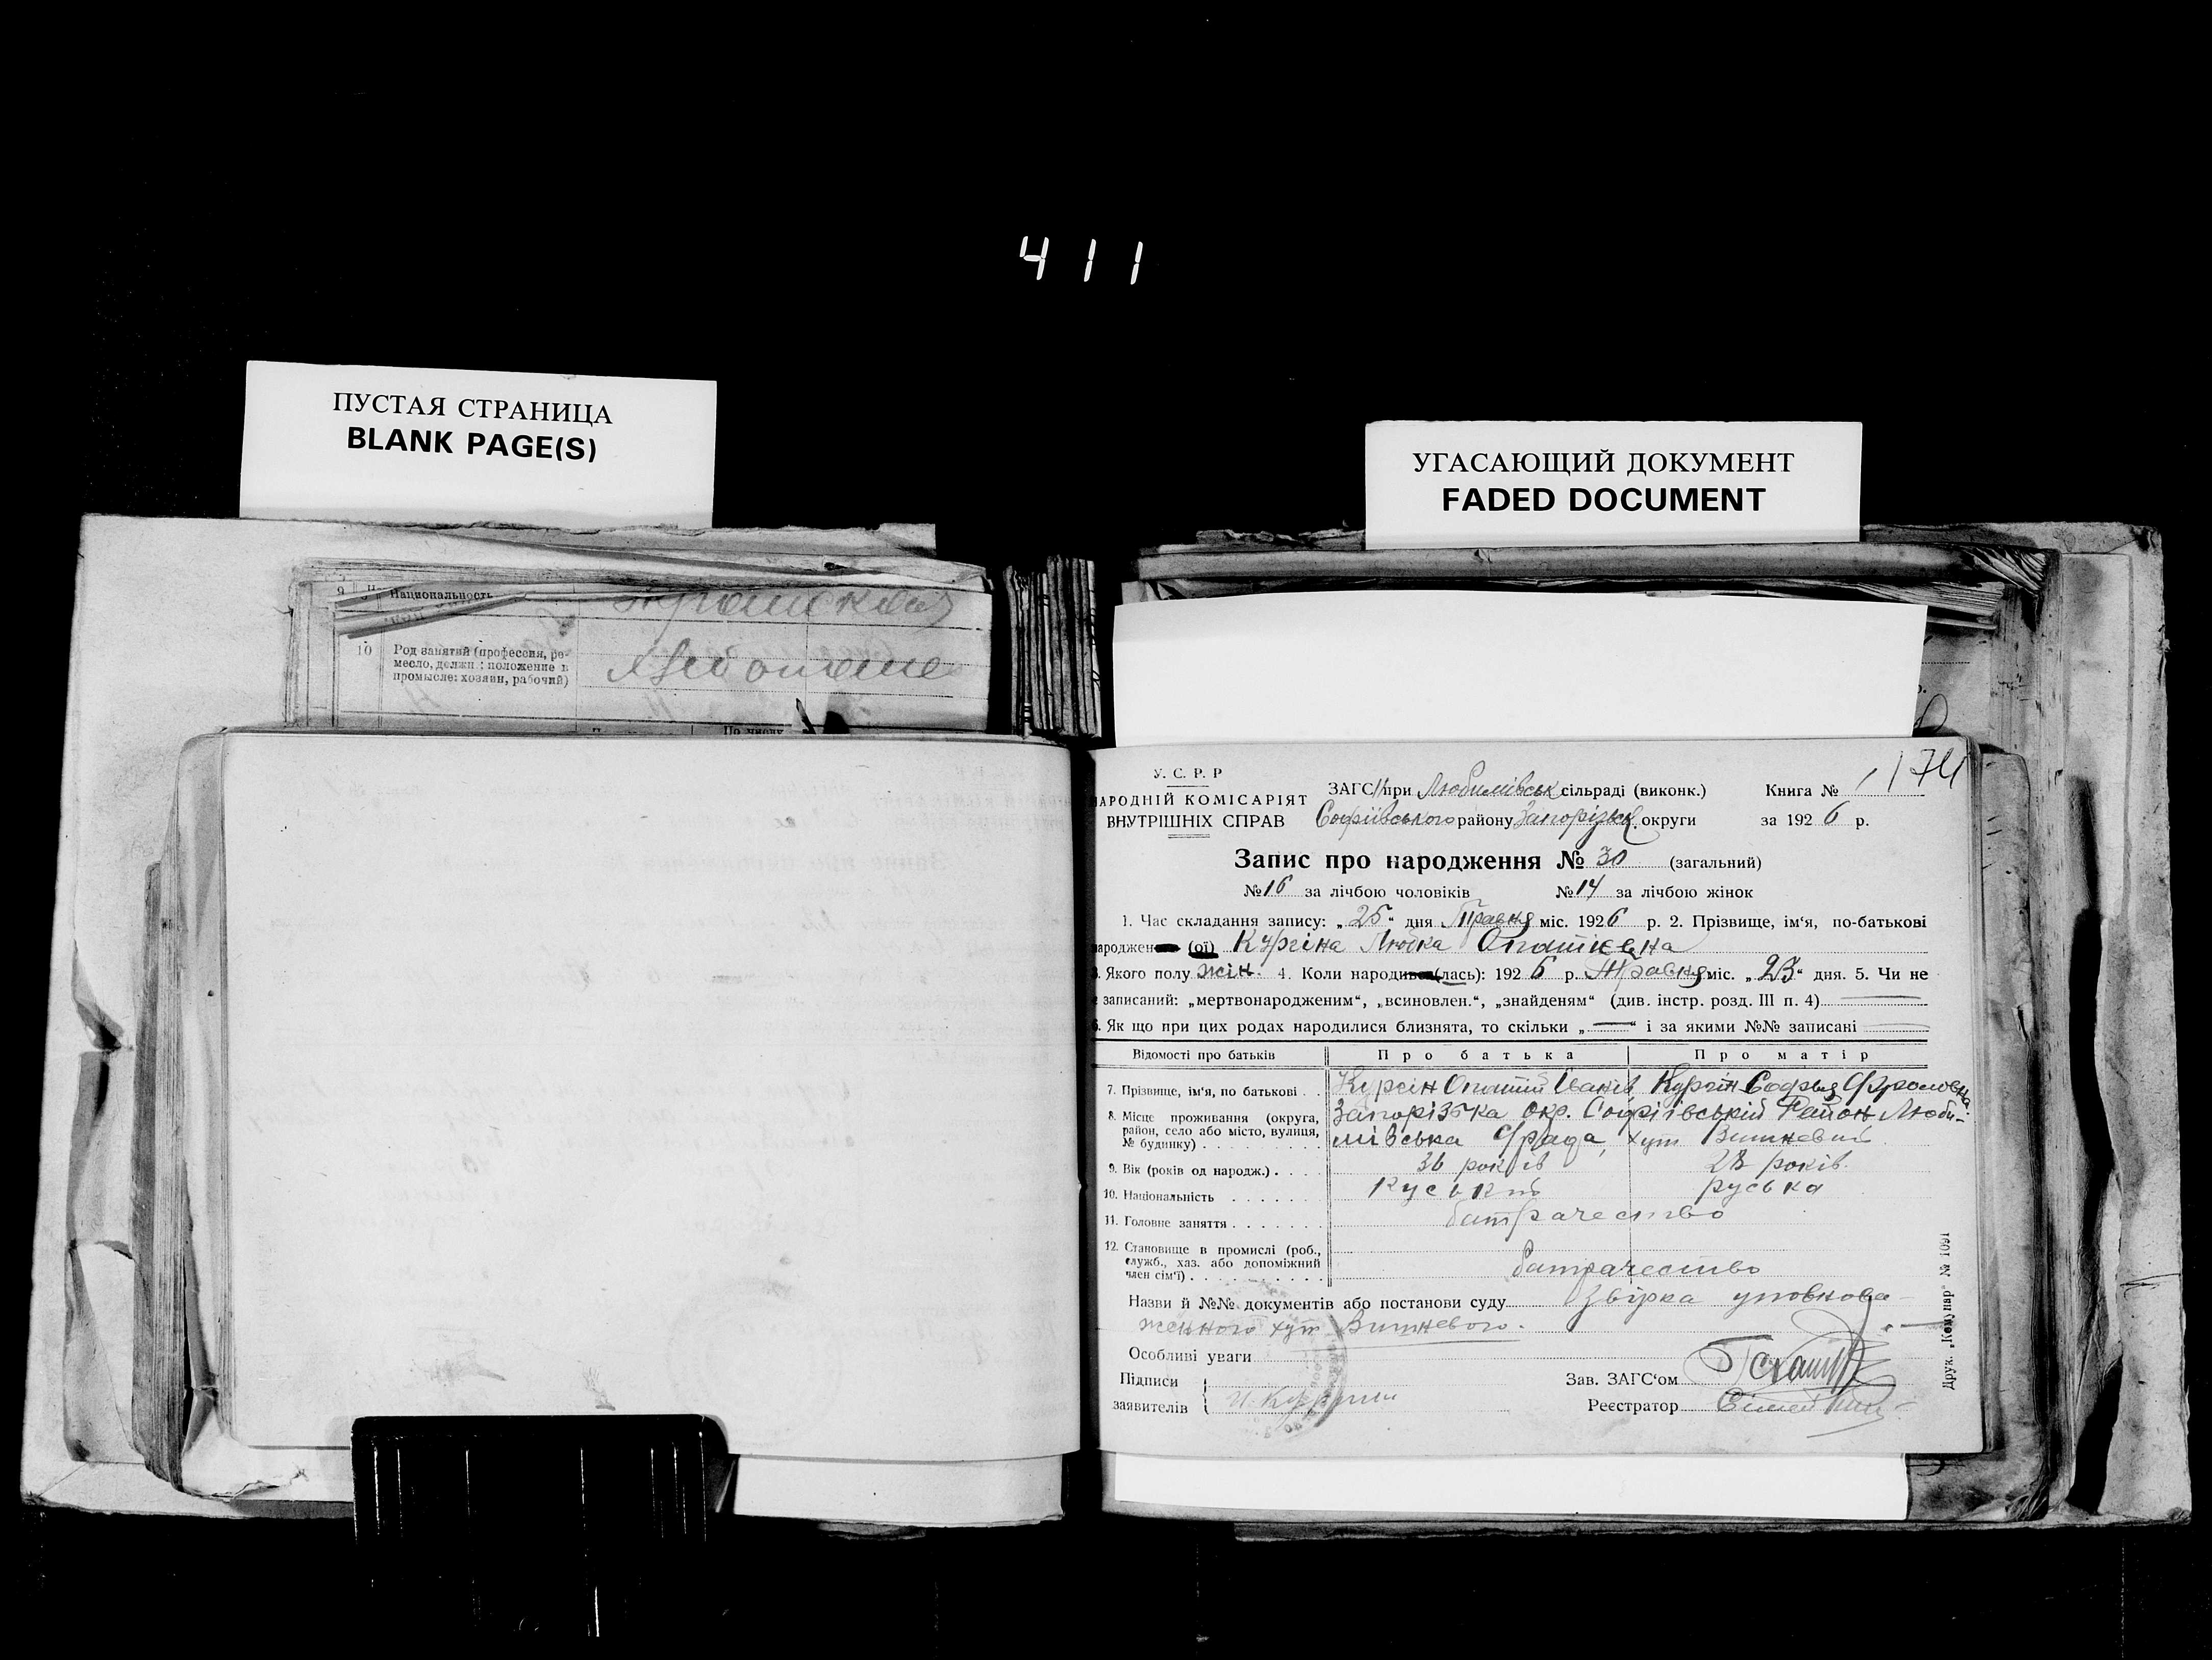 411
ПУСТАЯ СТРАНИЦА
BLANK PAGE(S)
УГАСАЮЩИЙ ДОКУМЕНТ
FADED DOCUMENT
9 Национальность
10 Род занятий (профессия, ре-
месло, должн; положение в
промысле: хозяин, рабочий)
По числу
174
У. С. Р. Р
НАРОДНІЙ КОМІСАРІЯТ
ВНУТРІШНІХ СПРАВ
ЗАГС при Любимівськ сільраді (виконк.) Книга № 1
Софіївського району Запорізьк. округи за 1926 р.
Запис про народження № 30 (загальний)
№ 16 за лічбою чоловіків № 14 за лічбою жінок
1. Час складання запису: „25“ дня Травня міс. 1926 р. 2. Прізвище, ім‘я, по-батькові
народжен (ої) Кургіна Любка
3. Якого полу жін. 4. Коли народи (лась): 1926 р. Травня міс. „23“ дня. 5. Чи не
є записаний: „мертвонародженим“, „всиновлен.“, „знайденям“ (див. інстр. розд. III п. 4)
6. Як що при цих родах народилися близнята, то скільки „—“ і за якими №№ записані —
Відомості про батьків Про батька Про матір
7. Прізвище, ім‘я, по батькові . . Кургін Іванів Кургін Софья Фроловна.
8. Місце проживання (округа,
район, село або місто, вулиця,
№ будинку)
Запорізька окр. Софіївський Район Люби-
мівська с/рада, хут Вишневий
9. Вік (років од народж.) . . . . 36 років 28 років.
10. Національність . . . . . . руська
11. Головне заняття . . . . . . . батрачество
12. Становище в промислі (роб.,
служб., хаз. або допоміжний
член сім‘ї)
батрачество
Назви й №№ документів або постанови суду Звірка уповнова-
женного хут Вишневого.
Особливі уваги
Підписи
заявителів И. Кургин
Зав. ЗАГС‘ом
Реєстратор
Друк. „Комунар“ № 1091